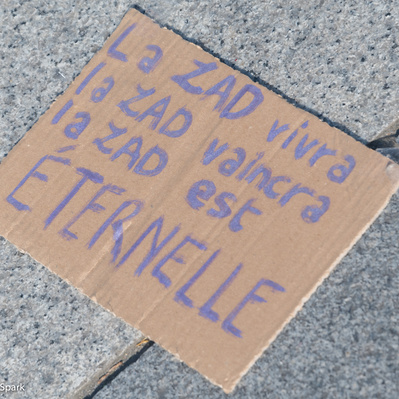 La ZAD vivra
la ZAD vaincra
la ZAD est
ÉTERNELLE
Spark